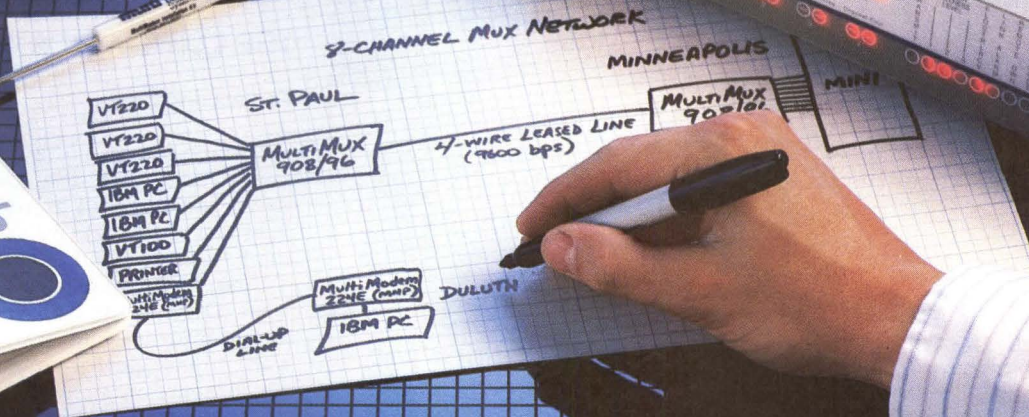 8-CHANNEL MUX NETWORK
MINNEAPOLIS
MINI
ST. PAUL
VT220
VT220
VT220
IBM PC
IBM PC
VT100
PRINTER
MultiModem
224E (MNP)
MULTIMUX
908/96
4-WIRE LEASED LINE
(9600 bps)
MULTIMUX
908/96
DIAL-UP
LINE
MultiModem
224E (MNP)
IBM PC
DULUTH